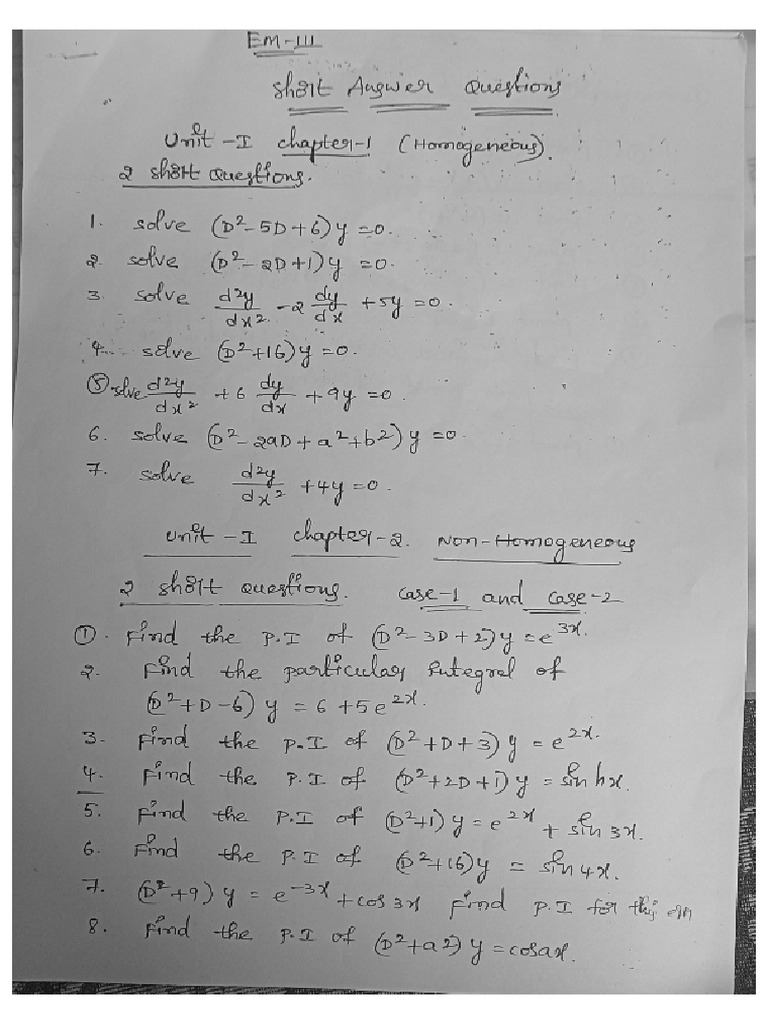 EM-III
Short Answer Questions
Unit-I chapter-1 (Homogeneous).
2 Short Questions.
1. solve (D²-5D+6)y=0.
2. solve (D²-2D+1)y=0.
3. solve d²y/dx² -2 dy/dx +5y=0.
4. solve (D²+16)y=0.
⑤ solve d²y/dx² +6 dy/dx +9y=0.
6. solve (D²-2aD+a²+b²)y=0.
7. solve d²y/dx² +4y=0.
Unit-I chapter-2. Non-Homogeneous
2 Short Questions. Case-1 and Case-2
①. Find the P.I of (D²-3D+2)y=e^3x.
2. Find the particular Integral of
(D²+D-6)y = 6+5e^2x.
3. Find the P.I of (D²+D+3)y = e^2x.
4. Find the P.I of (D²+2D+1)y = sin hx.
5. Find the P.I of (D²+1)y=e^2x + sin 3x.
6. Find the P.I of (D²+16)y = sin 4x.
7. (D²+9)y = e^-3x + cos 3x Find P.I for this
8. Find the P.I of (D²+a²)y=cosax.